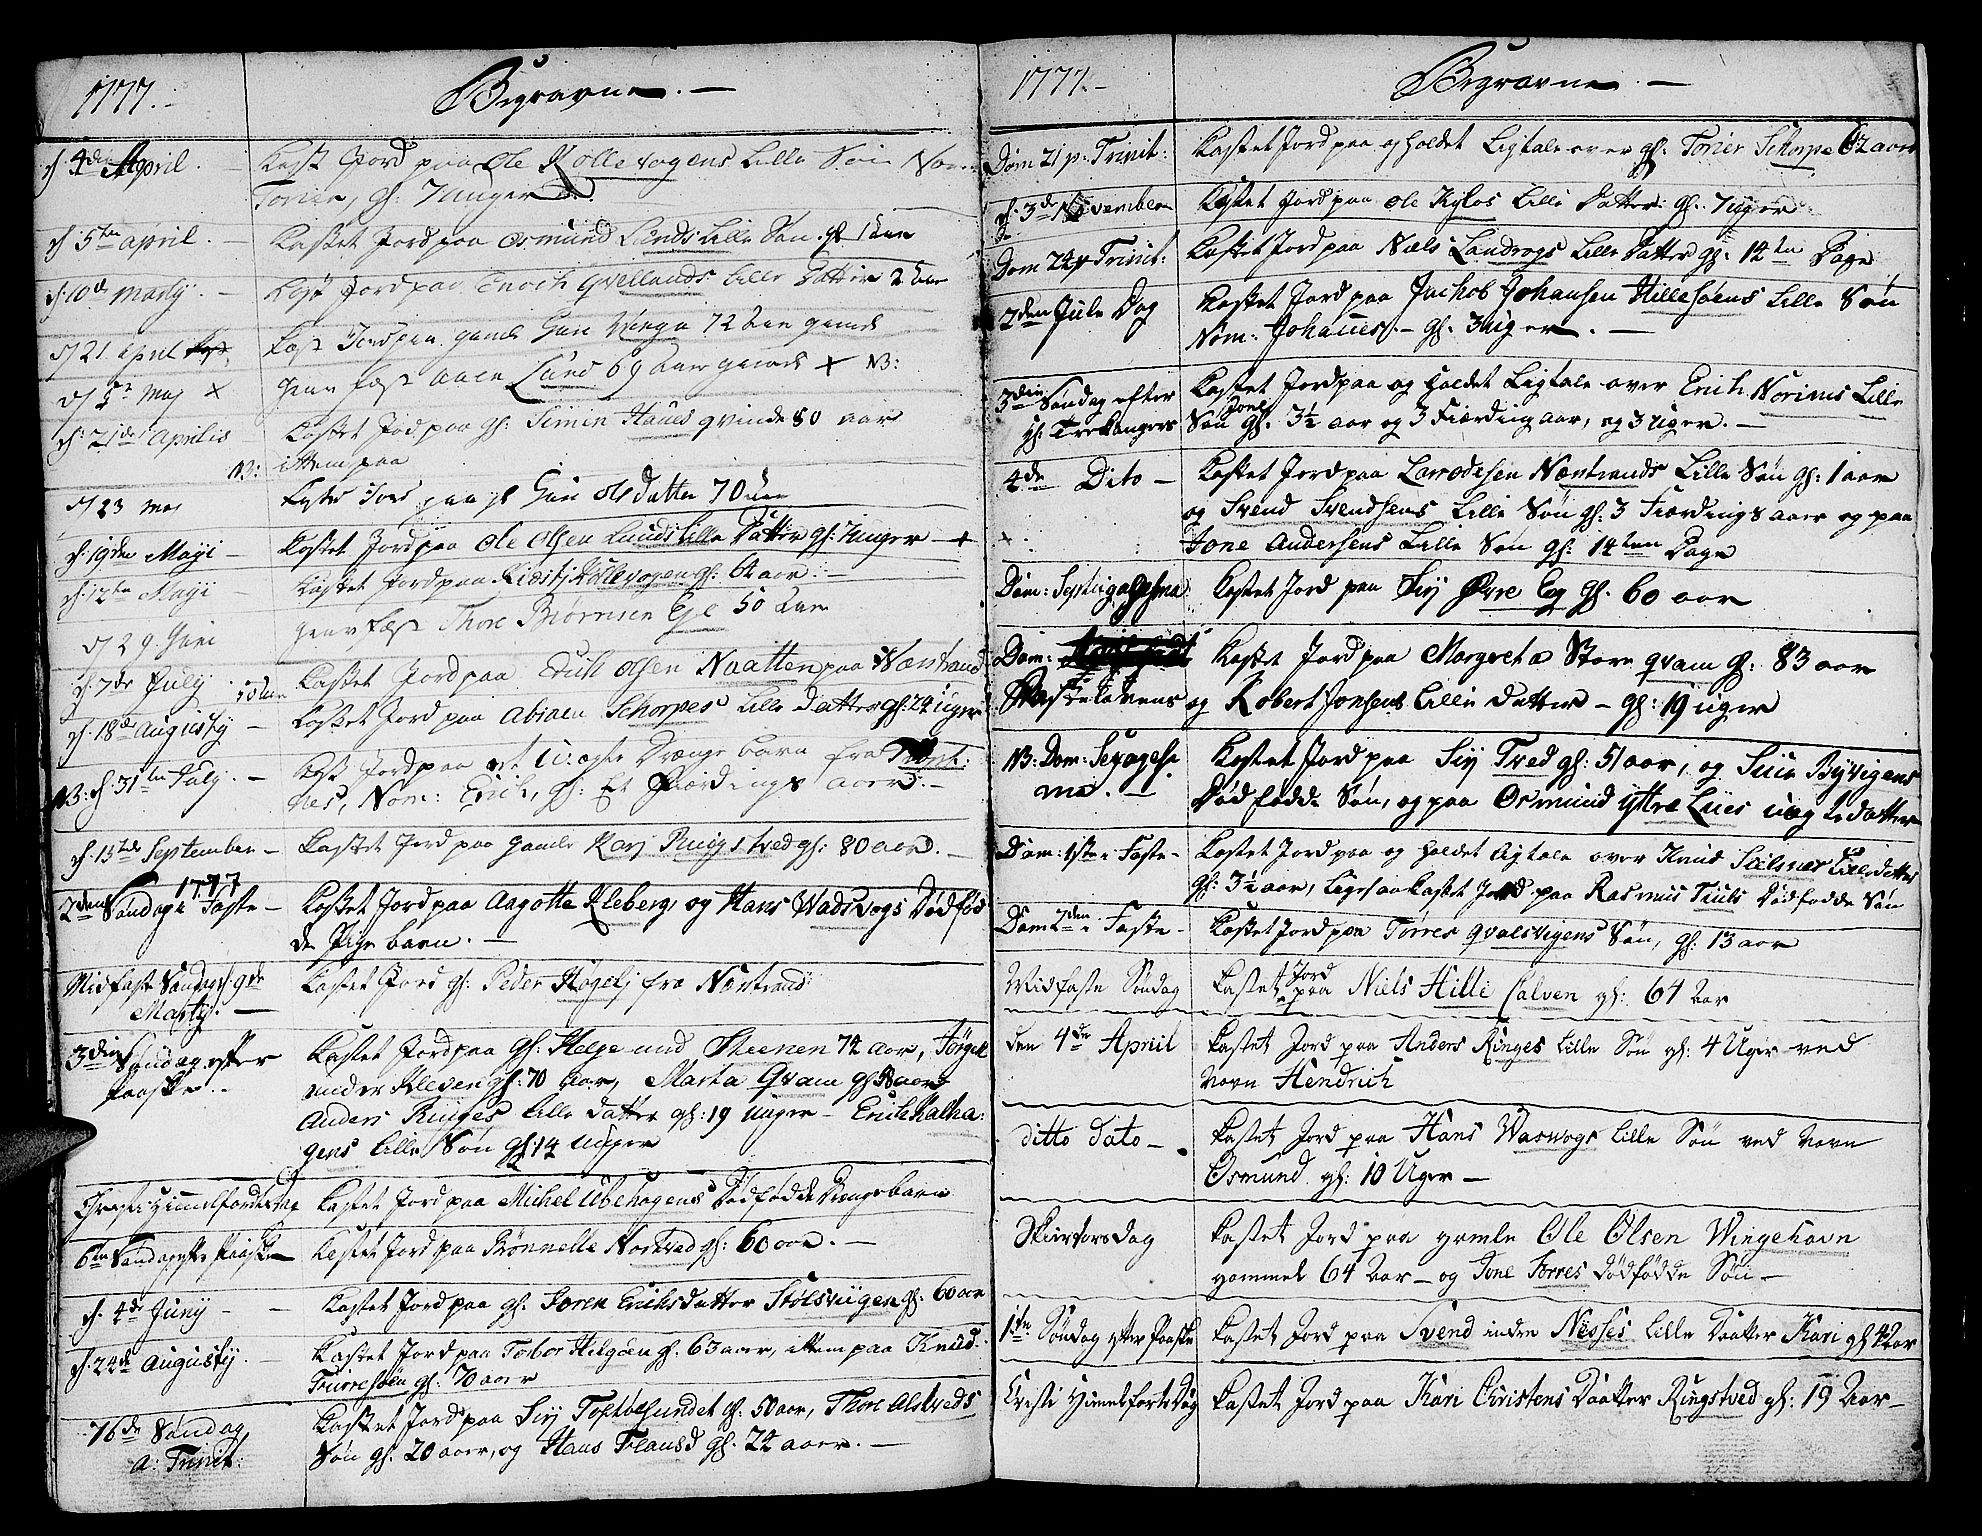 1777.
Begravne. —
d. 4de April. Kast Jord paa Ole Kollevogens Lille Søn Nom:
Torier, gl. 7 Uger
d. 5te april. — Kastet Jord paa Osmund Lunds Lille Søn. gl 1 aar
d. 10de Marty. — Kast Jord paa Enoch Qvellands Lille Datter 2 aar
d 21. april Kast Jord paa gamle Guri Winga 72 aar gamel
d 5te Maj × Jordfæst aaen Lund 69 aar gamel + NB:
d. 21de Aprilis Kastet Jord paa gl. Simen Haues qvinde 80 aar
NB: ittem paa
d 23 Maj Kastes Jord paa gl Guri olsdatter 70 aar
d. 19de Mayi — Kastet Jord paa Ole Olsen Lunds Lille Datter gl: 7 uger — +
d. 12te Mayi — Kastet Jord paa Kollevogen gl: 62 aar. —
d 29 Juni Jordfæst Thore Biørnsen Eje 50 aar
d. 7de July 50 aar Kastet Jord paa Erich Olsen Naatten paa Nærstrand
d. 18de Augusty — Kastet Jord paa Abraen Schorpes Lille datter gl: 24 uger
NB: d. 31te July. — Kast Jord paa et u: ægte Drænge barn fra
nes, Nom: Erich, gl: Et Fiærdings aar. —
d. 15de September — Kastet Jord paa gamle Karj Ringstved gl: 80 aar. —
1777
2den Søndag i Faste — Kastet Jord paa Aagotte Kleberg og Hans Wadsvogs Dødfød
de Pige barn. —
Midfaste Søndag d. 9de Kastet Jord gl. Peder Høgelj fra Nærstrand:
Marty. —
3die Søndag efter Kastet Jord paa gl: Helge und Steenen 74 aar, Jørgen
Paaske. — under Kleven gl: 70 aar, Marta Qvam gl 58 aar
Anders Ringes Lille datter gl: 19 uger — Erich Kalha:
gens Lille Søn gl: 14 uger
Christi Himmelfarts Dag Kastet Jord paa Michel Ubehagens Dødfødde Drengebarn
6te Søndag efter Paaske Kastet Jord paa Rønnelle Nortved gl: 60 aar. —
d. 4de Juny — Kastet Jord paa gl. Soren Eriksdatter Stølsviigen gl: 60 aar
d. 24de Augusty. Kastet Jord paa Tobor Helgøen gl. 63 aar, ittem paa Knud
Furresøen gl. 70 aar
16de Søndag Kastet Jord paa Sij Tostbesundet gl: 50 aar, Thore Alstveds
a: Trinit: Søn gl: 20 aar, og Hans Folansd gl: 24 aar. —
1777. —
Begravne. —
Dom 21 p. Trinit: Kastet Jord paa og holdet Ligtale over gl. Torier Schorpe 62 aar
d. 3de November Kastet Jord paa Ole Kylos Lille Datter: gl. 7 uger
Dom 24 p Trinit: Kastet Jord paa Niels Landrogs Lille Datter gl: 14ten Dage
2den Jule Dag Kastet Jord paa Jachob Johansen Hillesøens Lille Søn
Nom: Johannes. — gl. 3 uger. —
3die Søndag efter Kastet Jord paa og Holdet Ligtale over Erich Norines Lille
h. Trekongers Søn Jone gl. 3½ aar og 3 Fiærding aar, og 3 uger. —
4de Dito — Kastet Jord paa Larodesen Nærstrands Lille Søn gl: 1 aar
og Svend Svendsens Lille Søn gl: 3 Fiærdings aar og paa
Jone Andersens Lille Søn gl: 14ten Dage
Dom: Septuagesima Kastet Jord paa Sij Øvre Eg gl. 60 aar
Dom: Kastet Jord paa Margreta Store qvam gl: 83 aar
Fastelavens og Robert Jonsens Lille datter — gl: 19 uger
NB: Dom: Sexagesi Kastet Jord paa Sij Tved gl: 51 aar, og Siur Byvigens
ma. — Dødfødde Søn, og paa Osmund ytre Liies uægte datter
Dom: 1ste i Faste — Kastet Jord paa og Holdet Ligtale over Knud Sælsnæs Lille datter
gl: 3½ aar, Ligesaa Kastet Jord paa Rasmus Tiuls Dødfødde Søn
Dom: 2den i Faste — Kastet Jord paa Torres qvalsvigens Søn, gl: 13 aar
Midfaste Søndag Kastet Jord paa Niels Hille Calven gl: 64 Aar
den 4de Apriil Kastet Jord paa Anders Ringes Lille Søn gl: 4 Uger ved
Navn Hendrich
ditto Dato — Kastet Jord paa Hans Waswogs Lille Søn ved Navn
Osmund gl: 10 Uger —
Skiertorsdag Kastet Jord paa gamle Ole Olsen Wingehavn
gammel 64 Aar — og Jone Torres Dødfødde Søn —
1ste Søndag efter Paaske Kastet Jord paa Svend indre Nesses Lille Daatter Kari gl 4 Aar
Christi Himmelfarts Dag Kastet Jord paa Kari Christens Daatter Ringstved gl: 19 Aar —